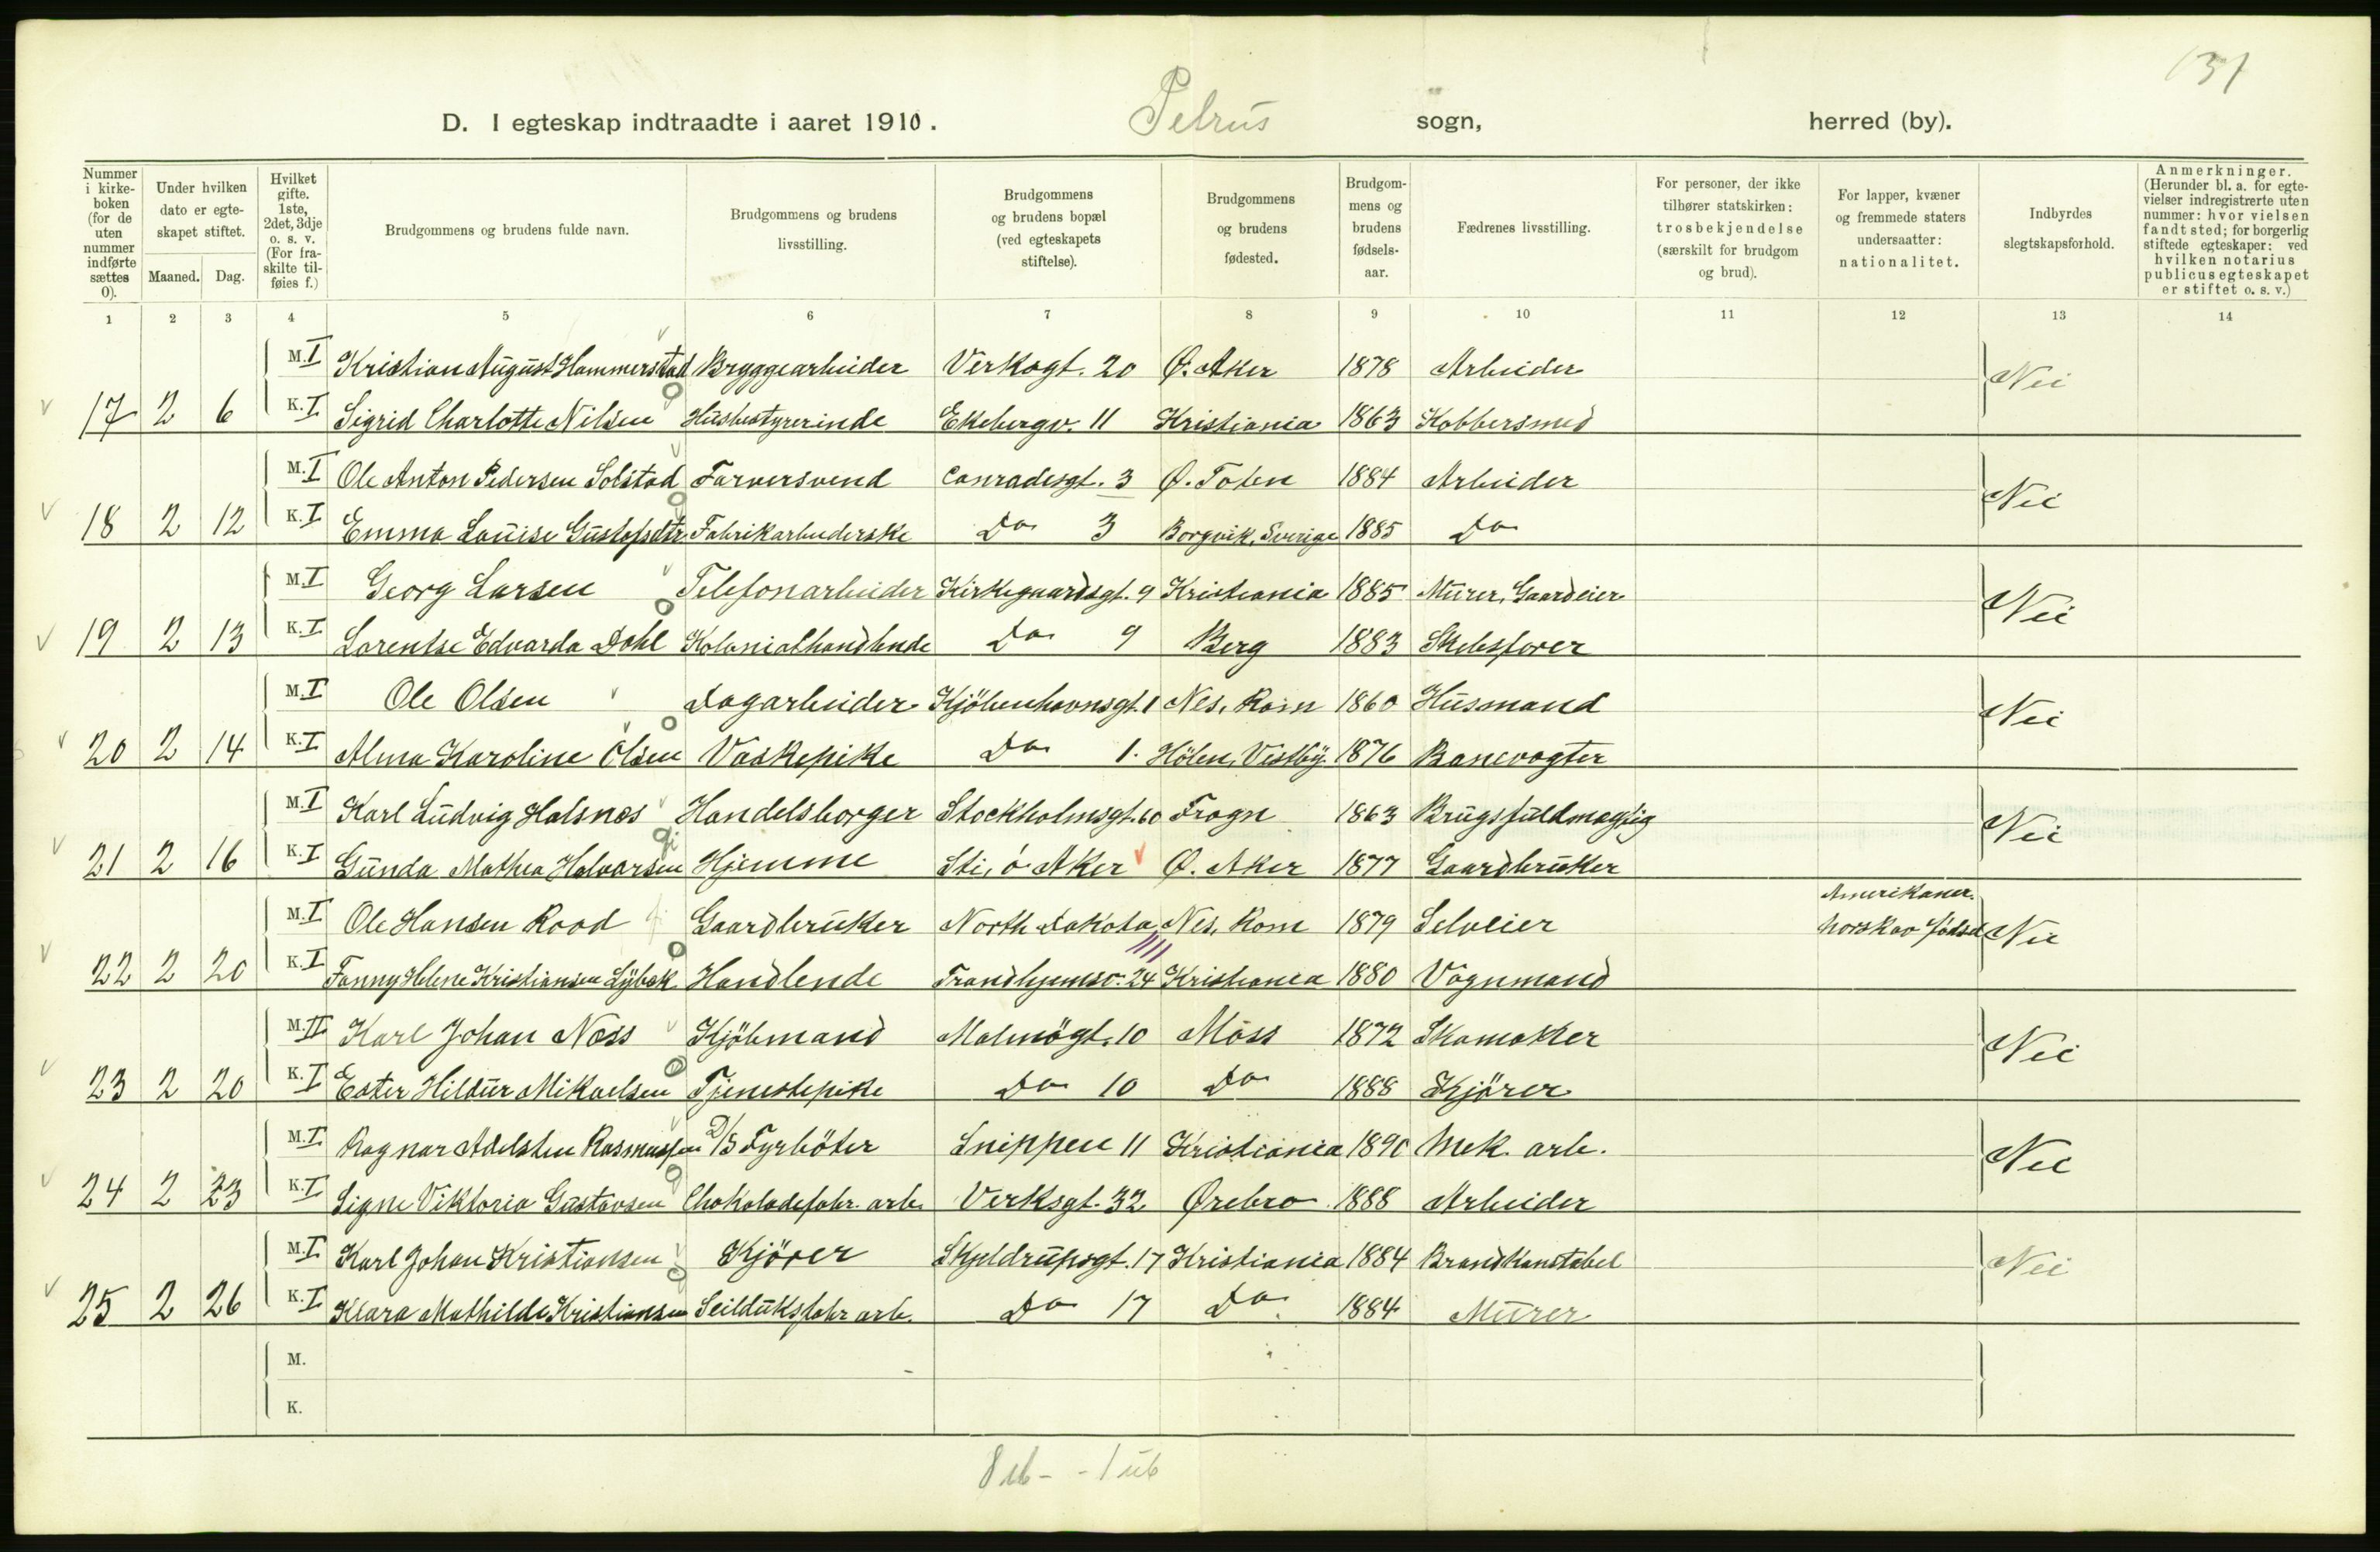 131
D. I egteskap indtraadte i aaret 1910. Petrus sogn, herred (by).
Nummer i kirkeboken (for de uten nummer indførte sættes 0).
Under hvilken dato er egteskapet stiftet.
Maaned. Dag.
Hvilket gifte. 1ste, 2det, 3dje o. s. v. (For fraskilte tilføies f.)
Brudgommens og brudens fulde navn.
Brudgommens og brudens livsstilling.
Brudgommens og brudens bopæl (ved egteskapets stiftelse).
Brudgommens og brudens fødested.
Brudgommens og brudens fødselsaar.
Fædrenes livsstilling.
For personer, der ikke tilhører statskirken: trosbekjendelse (særskilt for brudgom og brud).
For lapper, kvæner og fremmede staters undersaatter: nationalitet.
Indbyrdes slegtskapsforhold.
Anmerkninger. (Herunder bl. a. for egtevielser indregistrerte uten nummer: hvor vielsen fandt sted; for borgerlig stiftede egteskaper: ved hvilken notarius publicus egteskapet er stiftet o. s. v.)
1 2 3 4 5 6 7 8 9 10 11 12 13 14
M. I Kristian August Hammerstad Bryggearbeider Verksgt. 20 Ø. Aker 1878 Arbeider Nei
17 2 6 K. I Sigrid Charlotte Nilsen Husbestyrerinde Ekebergv. 11 Kristiania 1863 Kobbersmed
M. I Ole Anton Pedersen Solstad Farversvend Conradisgt. 3 Ø. Toten 1884 Arbeider Nei
18 2 12 K. I Emma Louise Gustafsdtr Fabrikarbeiderske Do 3 Borgvik, Sverige 1885 Do
M. I Georg Larsen Telefonarbeider Kirkegaardsgt. 9 Kristiania 1885 Murer, Gaardeier Nei
19 2 13 K. I Lorentse Edvarda Dahl Kolonialhandlende Do 9 Berg 1883 Skibsfører
M. I Ole Olsen Dagarbeider Kjöbenhavnsgt. 1 Nes, Rom 1860 Husmand Nei
20 2 14 K. I Alma Karoline Olsen Vaskepike Do 1. Hölen, Vestby 1876 Banevogter
M. I Karl Ludvig Halsnes Handelsborger Stockholmsgt. 60 Frogn 1863 Brugsfuldmægtig Nei
21 2 16 K. I Gunda Mathea Halvorsen Hjemme Sti, ö Aker Ø. Aker 1877 Gaardbruker
Amerikaner.
M. I Ole Hansen Rood Gaardbruker North Dakota Nes, Rom 1879 Selveier norsk av fødsel Nei
22 2 20 K. I Fanny Helene Kristiansen Lybæk Handlende Trondhjemsv. 24 Kristiania 1880 Vognmand
M. II Karl Johan Næss Kjöbmand Malmögt. 10 Moss 1872 Skomaker Nei
23 2 20 K. I Ester Hildur Mikaelsen Tjenestepike Do 10 Do 1888 Kjörer
M. I Ragnar Adelsten Rasmussen D/S Fyrböter Snippen 11 Kristiania 1890 Mek. arb. Nei
24 2 23 K. I Signe Viktoria Gustavsen Chokoladefabr. arb. Verksgt. 32 Ørebro 1888 Arbeider
M. I Karl Johan Kristiansen Kjörer Skjeldrupsgt. 17 Kristiania 1884 Brandkonstabel Nei
25 2 26 K. I Klara Mathilde Kristiansen Seilduksfabr arb. Do 17 Do 1884 Murer
M.
K.
8 ub - - 1 ub